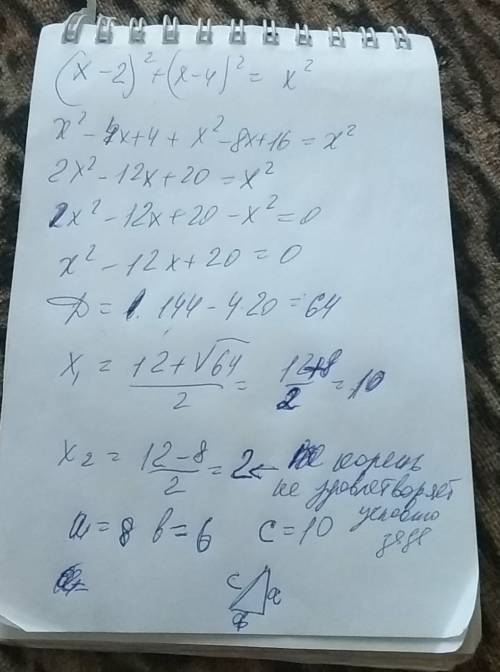 (x-2)² + (x-4)² = x²
x² - 4x + 4 + x² - 8x + 16 = x²
2x² - 12x + 20 = x²
2x² - 12x + 20 - x² = 0
x² - 12x + 20 = 0
D = 144 - 4·20 = 64
x₁ = (12 + √64)/2 = (12+8)/2 = 10
x₂ = (12 - 8)/2 = 2 ← корень
не удовлетворяет
условию
a = 8 b = 6 c = 10
c a